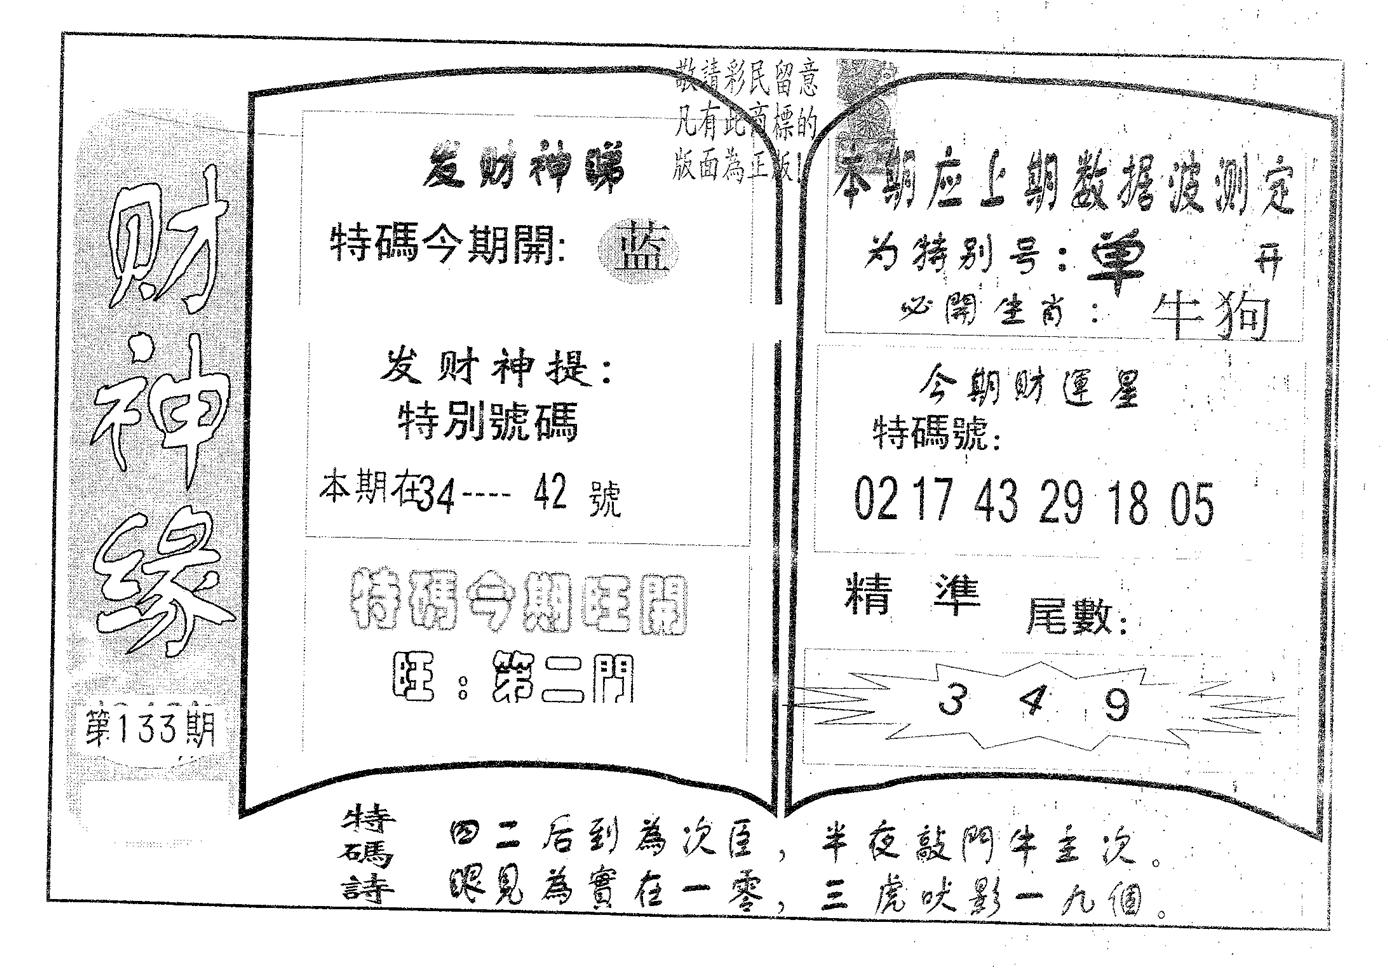 财神缘
第133期
敬請彩民留意
凡有此商標的
版面為正版!
发财神睇
特碼今期開: 蓝
发财神提:
特別號碼
本期在34---- 42 號
特碼今期旺開
旺: 第二門
本期应上期数据波测定
为特别号: 单 开
必開生肖: 牛狗
今期財運星
特碼號:
02 17 43 29 18 05
精 準 尾數:
3 4 9
特碼詩
四二后到為次臣, 半夜敲門牛主次。
眼見為實在一零, 三虎吠影一九個。